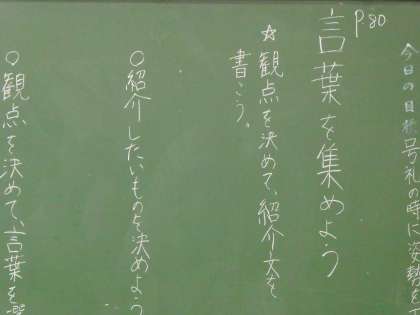 今日の目標 号礼の時に姿勢を
P80
言葉を集めよう
☆観点を決めて、紹介文を
書こう。
○紹介したいものを決めよう
○観点を決めて、言葉を